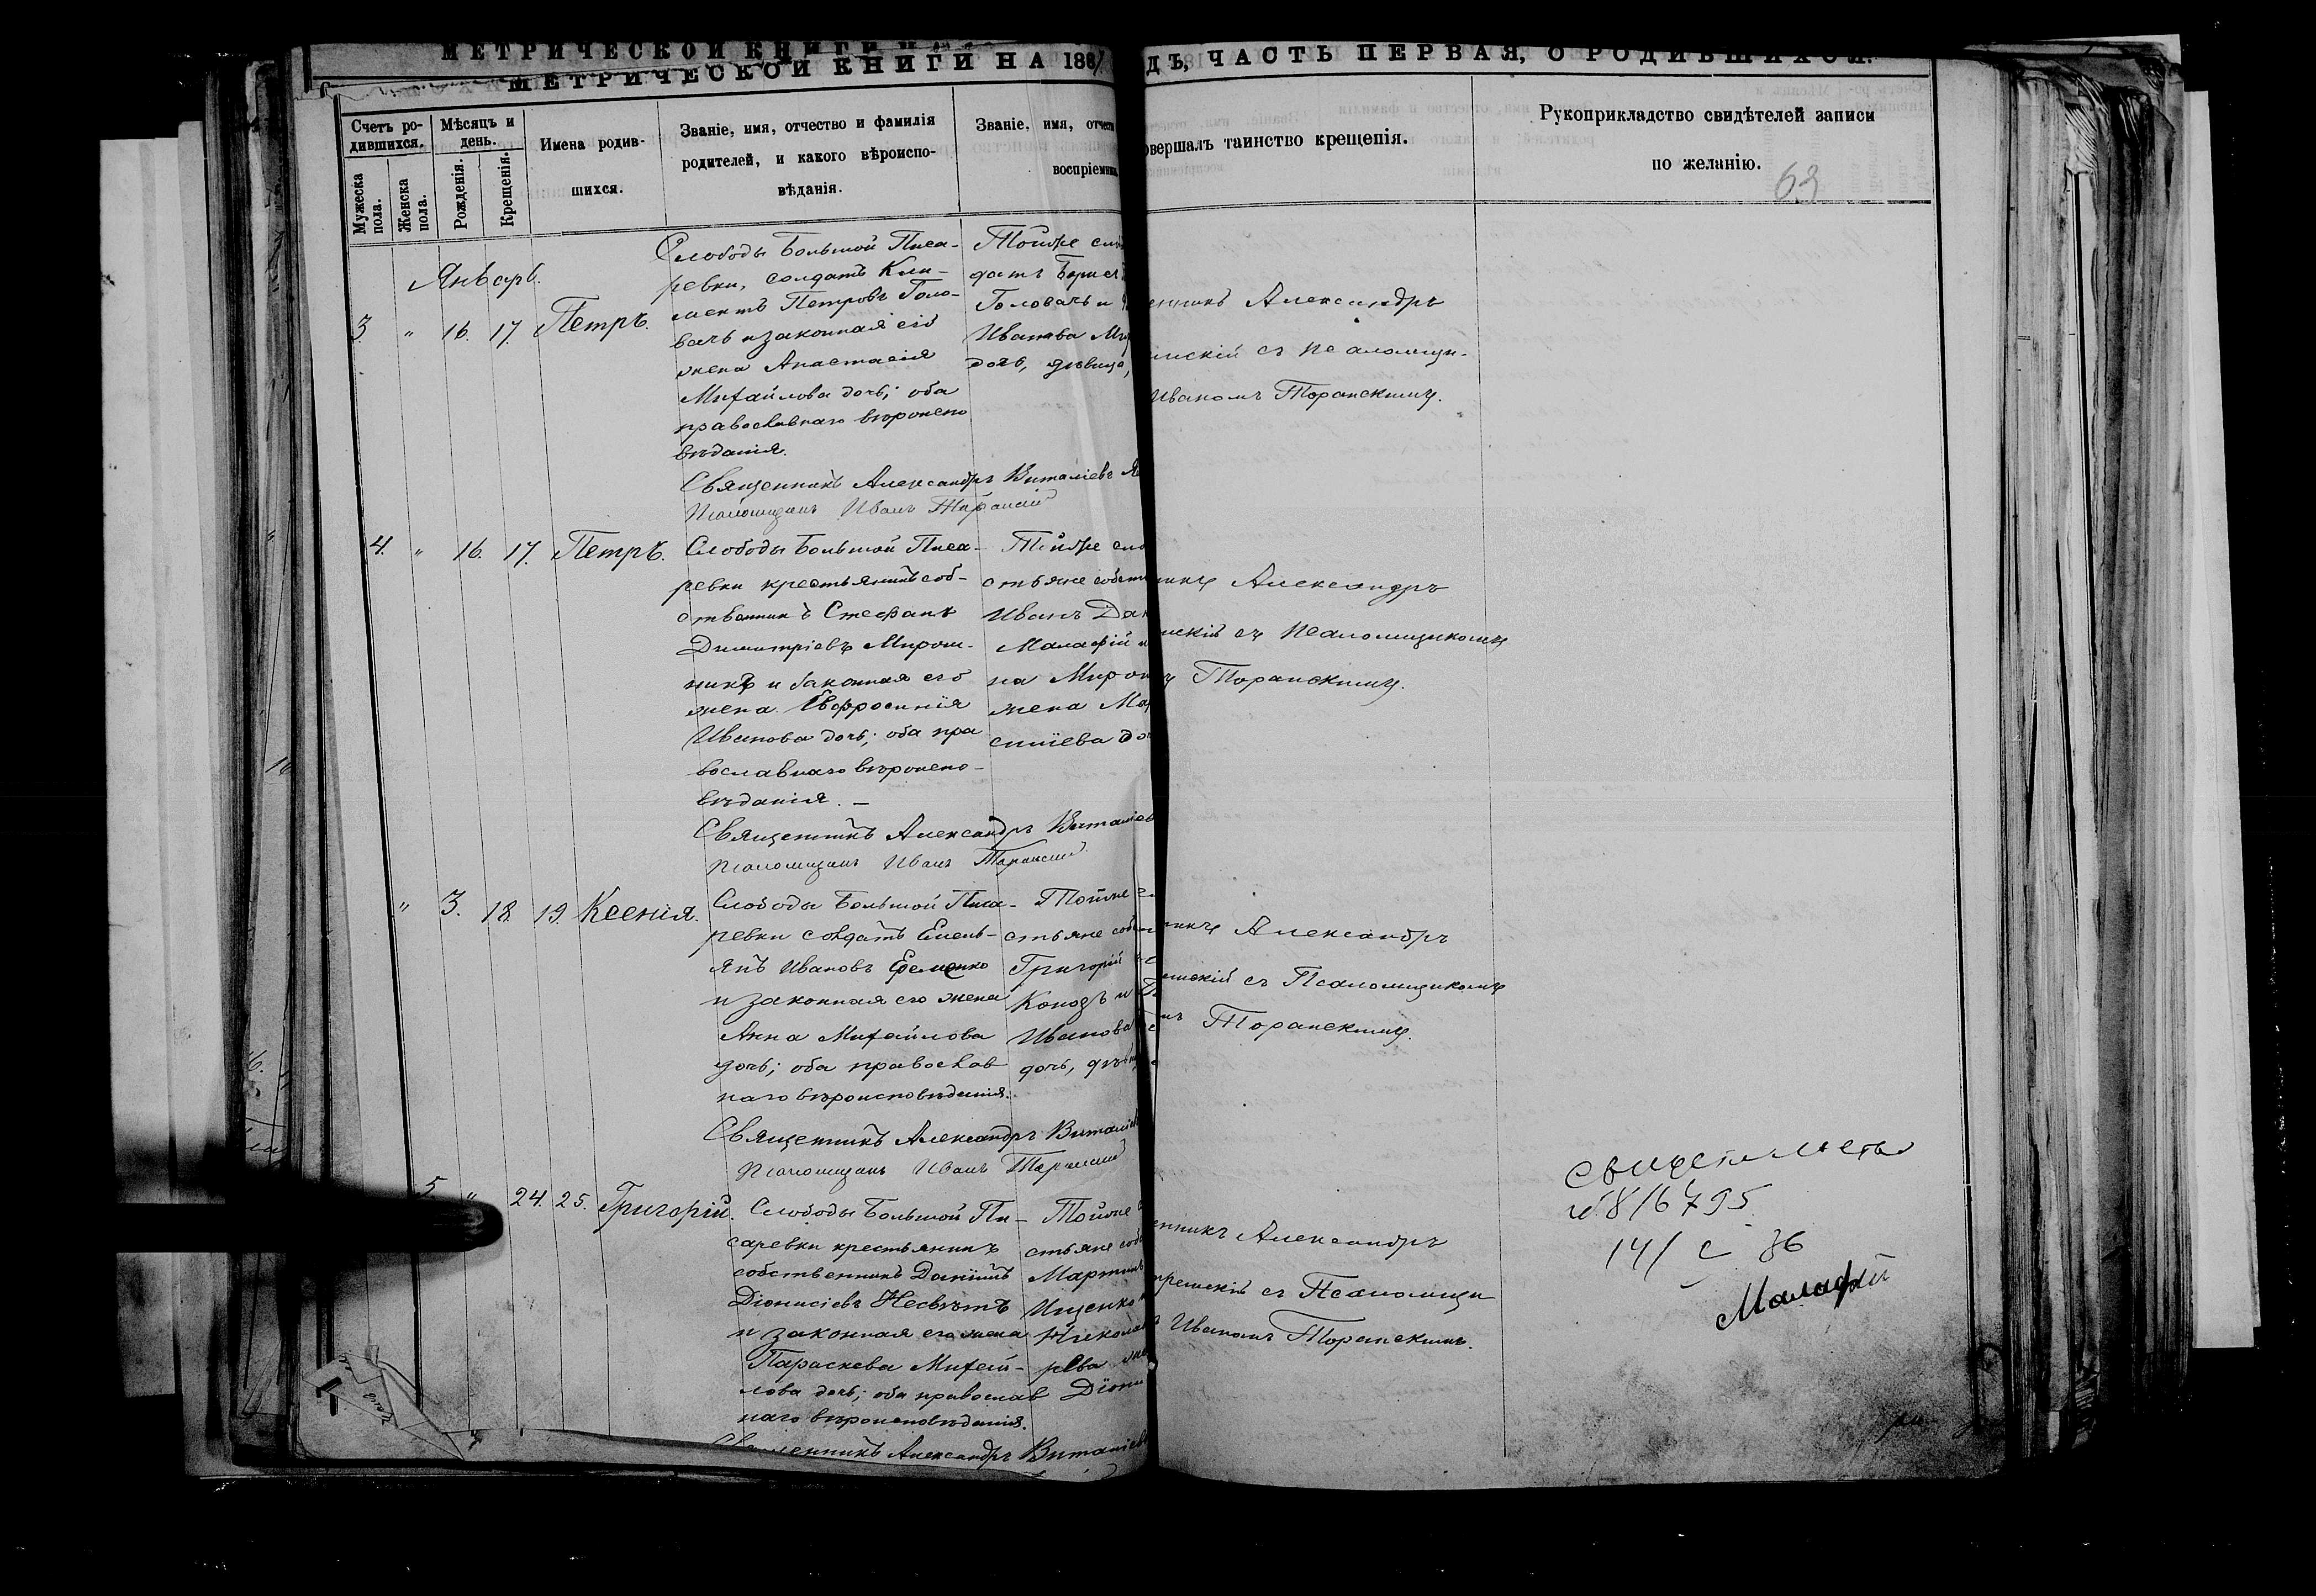 МЕТРИЧЕСКОЙ КНИГИ
МЕТРИЧЕСКОЙ КНИГИ НА 188
ДЪ, ЧАСТЬ ПЕРВАЯ, О РОДИВШИХСЯ.
Счетъ ро-
дившихся.
Мужеска
пола.
Женска
пола.
Мѣсяцъ и
день.
Рожденія.
Крещенія.
Имена родив-
шихся.
Званіе, имя, отчество и фамилія
родителей, и какого вѣроиспо-
вѣданія.
Званіе, имя, отчест
воспріемник
овершалъ таинство крещенія.
Рукоприкладство свидѣтелей записи
по желанію.
63
Январь.
3. " 16. 17. Петръ.
Слободы Большой Писа-
ревки, солдатъ Кли-
ментъ Петровъ Голо-
вачъ и законная его
жена Анастасія
Михайлова дочь; оба
православнаго вѣроиспо
вѣданія.
Тойже сло
датъ Борисъ
Головачъ и
Иванова Ми
дочь, дѣвица,
енникъ Александръ
мскій съ псаломщи-
Иваномъ Торанскимъ.
Священникъ Александръ Виталіевъ
Псаломщикъ Иванъ Торанскій
4. " 16. 17. Петръ.
Слободы Большой Писа-
ревки крестьянинъ соб-
ственникъ Стефанъ
Димитріевъ Мирош-
никъ и законная его
жена Евфросинія
Иванова дочь; оба пра
вославнаго вѣроиспо-
вѣданія. —
Тойже сло
стьяне собств
Иванъ Дан
Малафій и
на Мирон
жена Мар
сіміева до
никъ Александръ
мскій съ Псаломщикомъ
Торанскимъ.
Священникъ Александръ Виталіев
Псаломщикъ Иванъ Торанскій
" 3. 18. 19. Ксенія.
Слободы Большой Писа-
ревки солдатъ Емель-
янъ Ивановъ Еременко
и законная его жена
Анна Михайлова
дочь; оба православ
наго вѣроисповѣданія.
Тойже
стьяне собст
Григорій
Конозъ и
Иванова
дочь, дѣви
никъ Александръ
емскій съ Псаломщикомъ
Торанскимъ.
Священникъ Александръ Виталіев
Псаломщикъ Иванъ Торанскій
5 " 24. 25. Григорій.
Слободы Большой Пи-
саревки крестьянинъ
собственникъ Даніилъ
Діонисіевъ Несвѣтъ
и законная его жена
Параскева Михай-
лова дочь; оба православ
наго вѣроисповѣданія.
Тойже
стьяне соб
Мартинъ
Ищенко
Никола
рева
Діони
енникъ Александръ
ремскій съ Псаломщи
Иваномъ Торанскимъ.
Малафій
Священникъ Александръ Виталіев